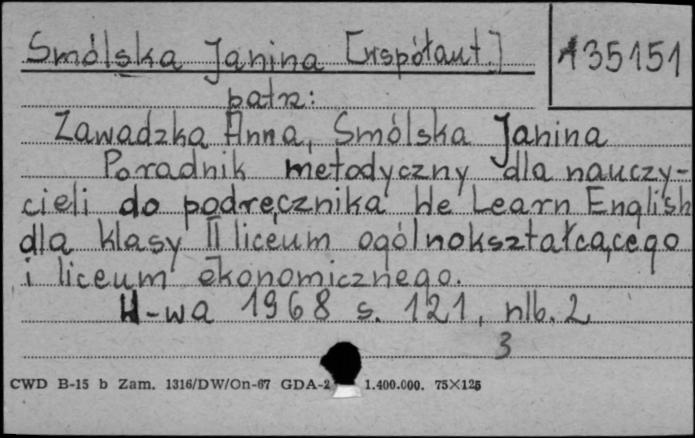 Smólska Janina [współaut.]
135151
patrz:
Zawadzka Anna, Smólska Janina
Poradnik metodyczny dla nauczy-
cieli do podręcznika We Learn English
dla klasy II liceum ogólnokształcącego
i liceum ekonomicznego.
W-wa 1968 s. 121, nlb. 2
3
CWD B-15 b Zam. 1316/DW/On-67 GDA-2 1.400.000. 75×125